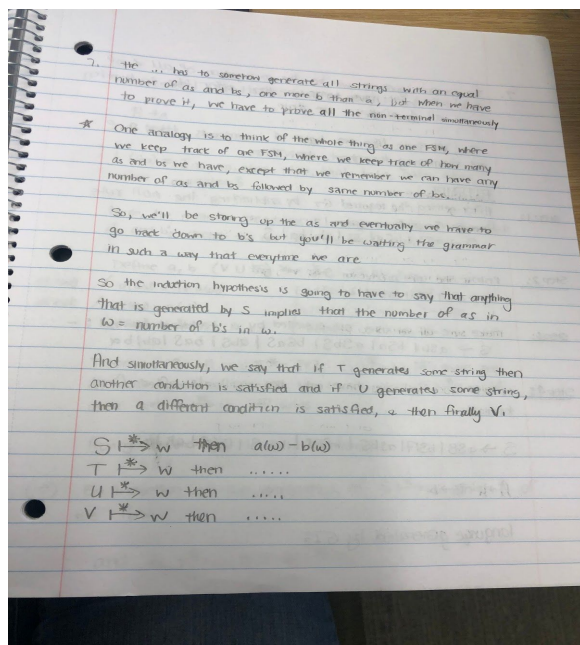 7. the ... has to somehow generate all strings with an equal
number of as and bs, one more b than a, but when we have
to prove it, we have to prove all the non-terminal simultaneously
* One analogy is to think of the whole thing as one FSM, where
we keep track of one FSM, where we keep track of how many
as and bs we have, except that we remember we can have any
number of as and bs followed by same number of bs.
So, we'll be storing up the as and eventually we have to
go back down to b's but you'll be waiting the grammar
in such a way that everytime we are
So the induction hypothesis is going to have to say that anything
that is generated by S implies that the number of as in
w = number of b's in w.
And simultaneously, we say that if T generates some string then
another condition is satisfied and if U generates some string,
then a different condition is satisfied, & then finally V.
S |*-> w then a(w) - b(w)
T |*-> w then ......
U |*-> w then .....
V |*-> w then .....